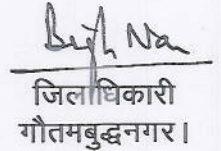 जिलाधिकारी
गौतमबुद्धनगर।